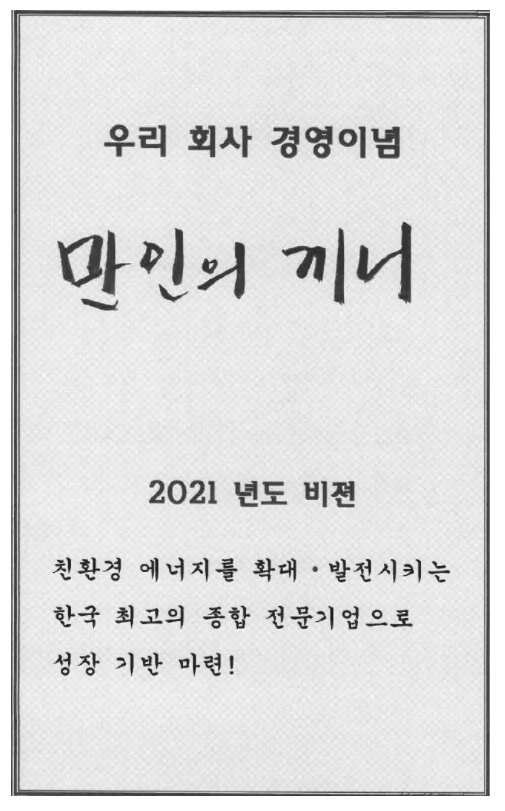 우리 회사 경영이념
만인의 끼니
2021 년도 비젼
친환경 에너지를 확대·발전시키는
한국 최고의 종합 전문기업으로
성장 기반 마련!